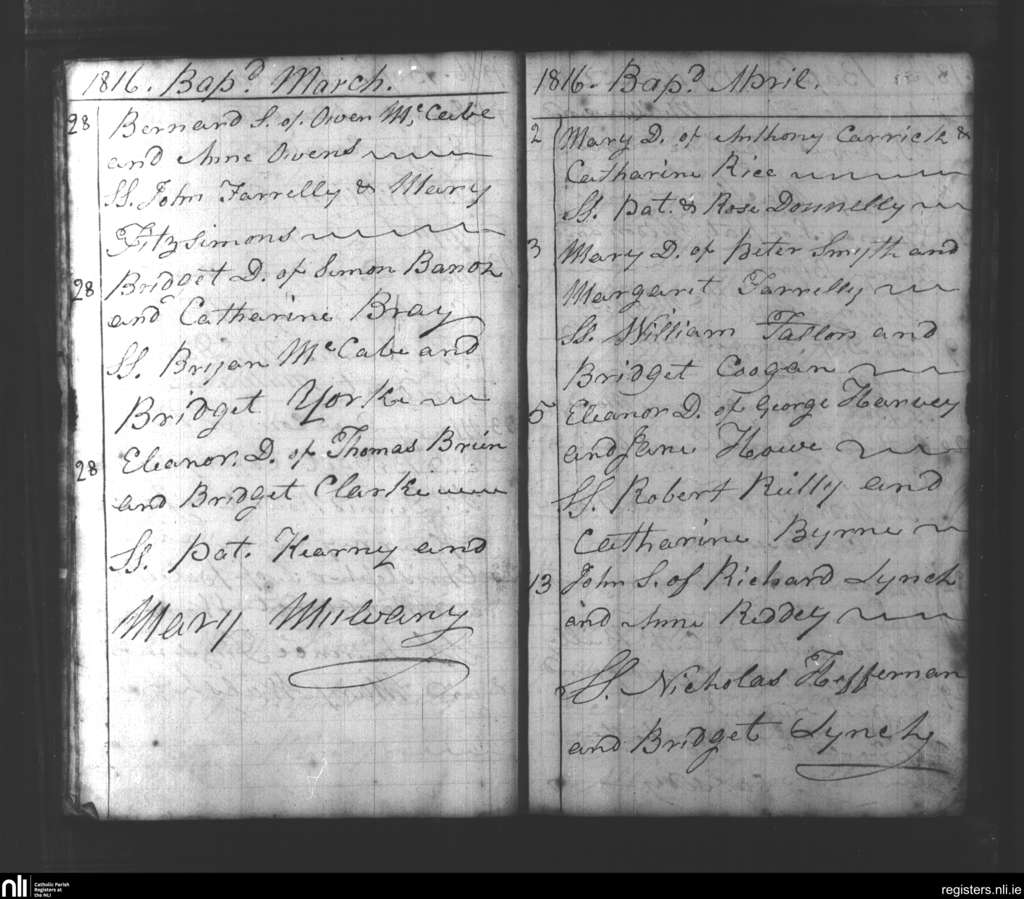 1816. Bap.d March.
28 Bernard S. of Owen Mc.Cabe
and Anne Owens
SS. John Farrelly & Mary
Fitzsimons
28 Bridget D. of Simon
and Catharine Bray
SS. Bryan McCabe and
Bridget Yorke
28 Eleanor. D. of Thomas Brien
and Bridget Clarke
SS. Pat. Kearny and
Mary Mulvany
1816. Bap.d April.
2 Mary D. of Anthony Carrick &
Catharine Rice
SS. Pat. & Rose Donnelly
3 Mary D. of Peter Smyth and
Margaret Farrelly
SS. William Tallon and
Bridget Coogan
5 Eleanor D. of George Harvey
and Jane Howe
SS. Robert Reilly and
Catharine Byrne
13 John S. of Richard Lynch
and Anne Reddey
SS. Nicholas Heffernan
and Bridget Lynch
nli Catholic Parish
Registers at
the NLI
registers.nli.ie